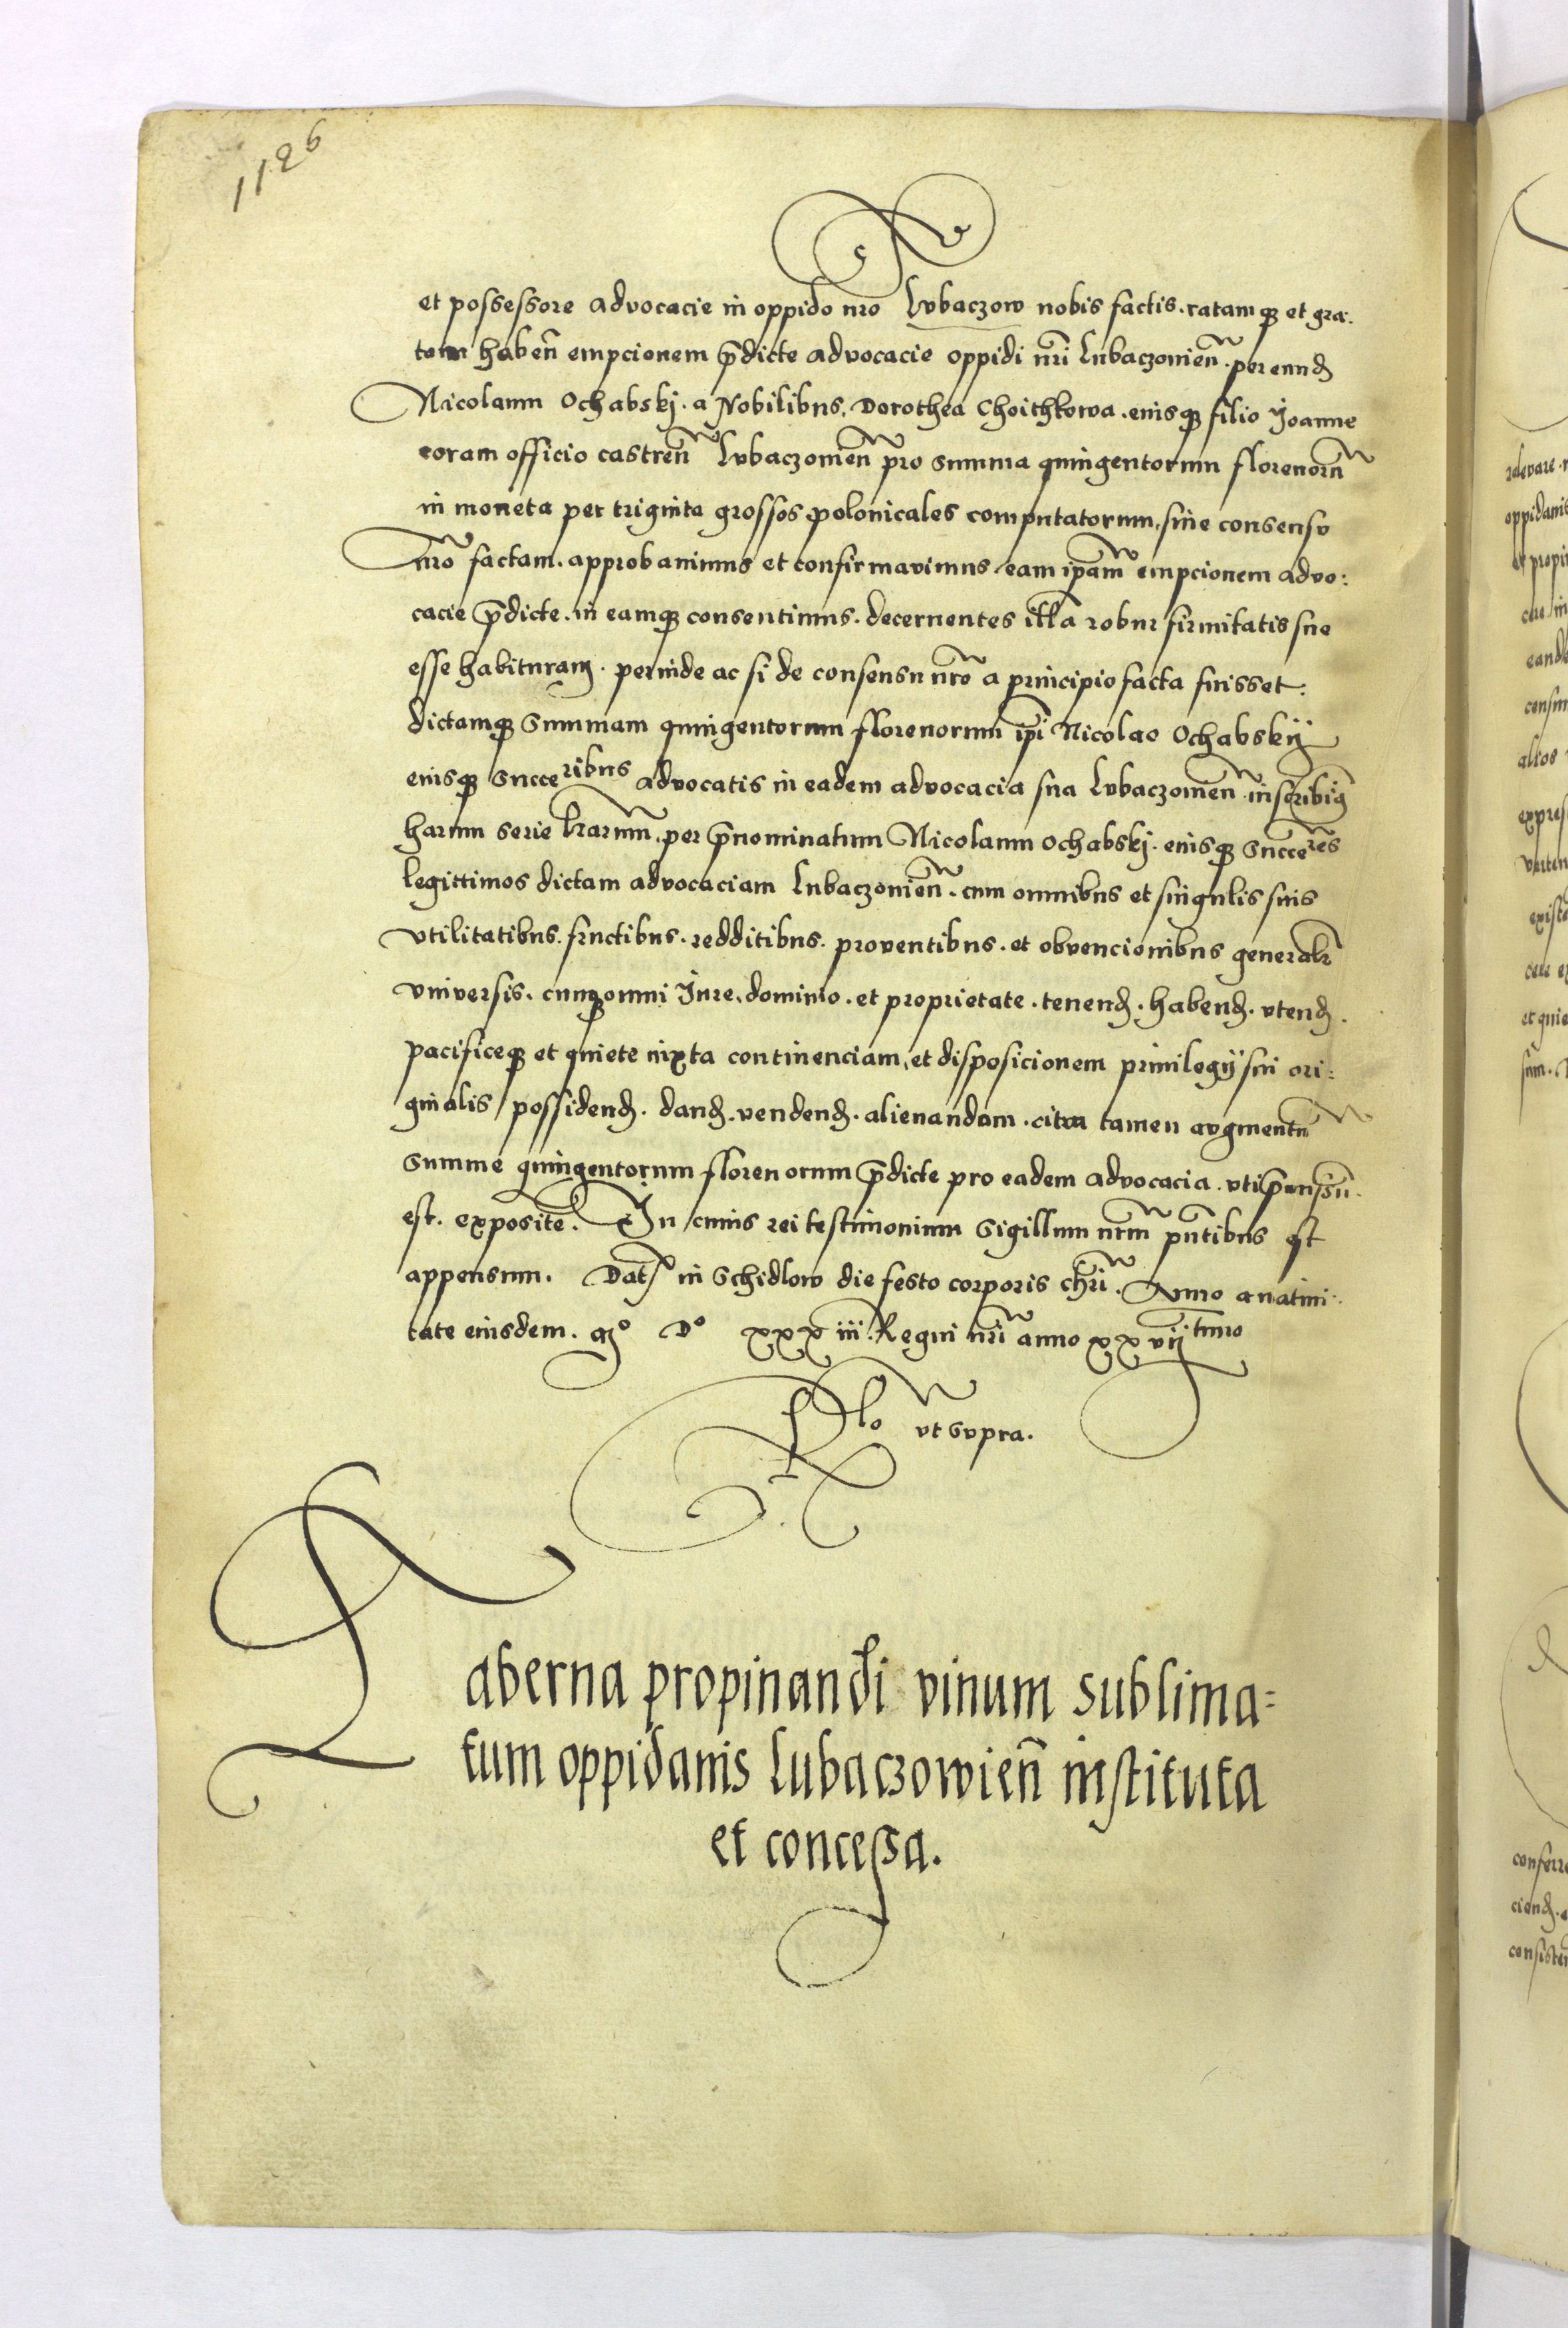 1126
et possessore advocacie in oppido nr̃o Lvbaczow nobis factis. ratamqȝ et gra:
tam habeñ empcionem p̃dicte advocacie oppidi nr̃i Lubaczovien̄. per eundȝ
Nicolaum Ochabskj. a Nobilibus. Dorothea Choithkowa. eiusqȝ filio Joanne
coram officio castren̄ Lvbaczovien̄ pro summa quingentorum florenorū
in moneta per triginta grossos polonicales computatorum, sine consensv
nr̃o factam. approbavimus et confirmavimus eam ip̃am empcionem advo:
cacie p̃dicte. in eamqȝ consentimus. decernentes illā robur firmitatis sue
esse habituram. perinde ac si de consensu nr̃o a principio facta fuisset:
dictamqȝ summam quingentorum florenorum ip̃i Nicolao Ochabskij
eiusqȝ succeribus advocatis in eadem advocacia sua Lvbaczovien̄ inscribiꝫ
harum serie lrarum̄, per p̃nominatum Nicolaum Ochabskj. eiusqȝ succeres
legittimos dictam advocaciam Lubaczovien̄. cum omnibus et singulis suis
vtilitatibus. fructibus. redditibus. proventibus. et obvencionibus generalr̃
vniversis. cumqȝ omni Jure. dominio. et proprietate. tenendȝ. habendȝ. vtendȝ.
pacificeqȝ et quiete iuxta continenciam, et disposicionem privilegij sui ori:
ginalis possidendȝ. dandȝ. vendendȝ. alienandam. citra tamen avgmentū
summe quingentorum florenorum p̃dicte pro eadem advocacia. vti p̃missū.
est. exposite. In cuius rei testimonium sigillum nr̃m p̃ntibus est
appensum. Dat̃ in Schidlow die festo corporis chr̃i. Anno a nativi:
tate eiusdem. Mº Dº xxxiii. Regni nr̃i anno xxvijtimo
Rlo vt svpra.
Taberna propinandi vinum sublima=
tum oppidanis Lubaczowien̄ instituta
et concessa.